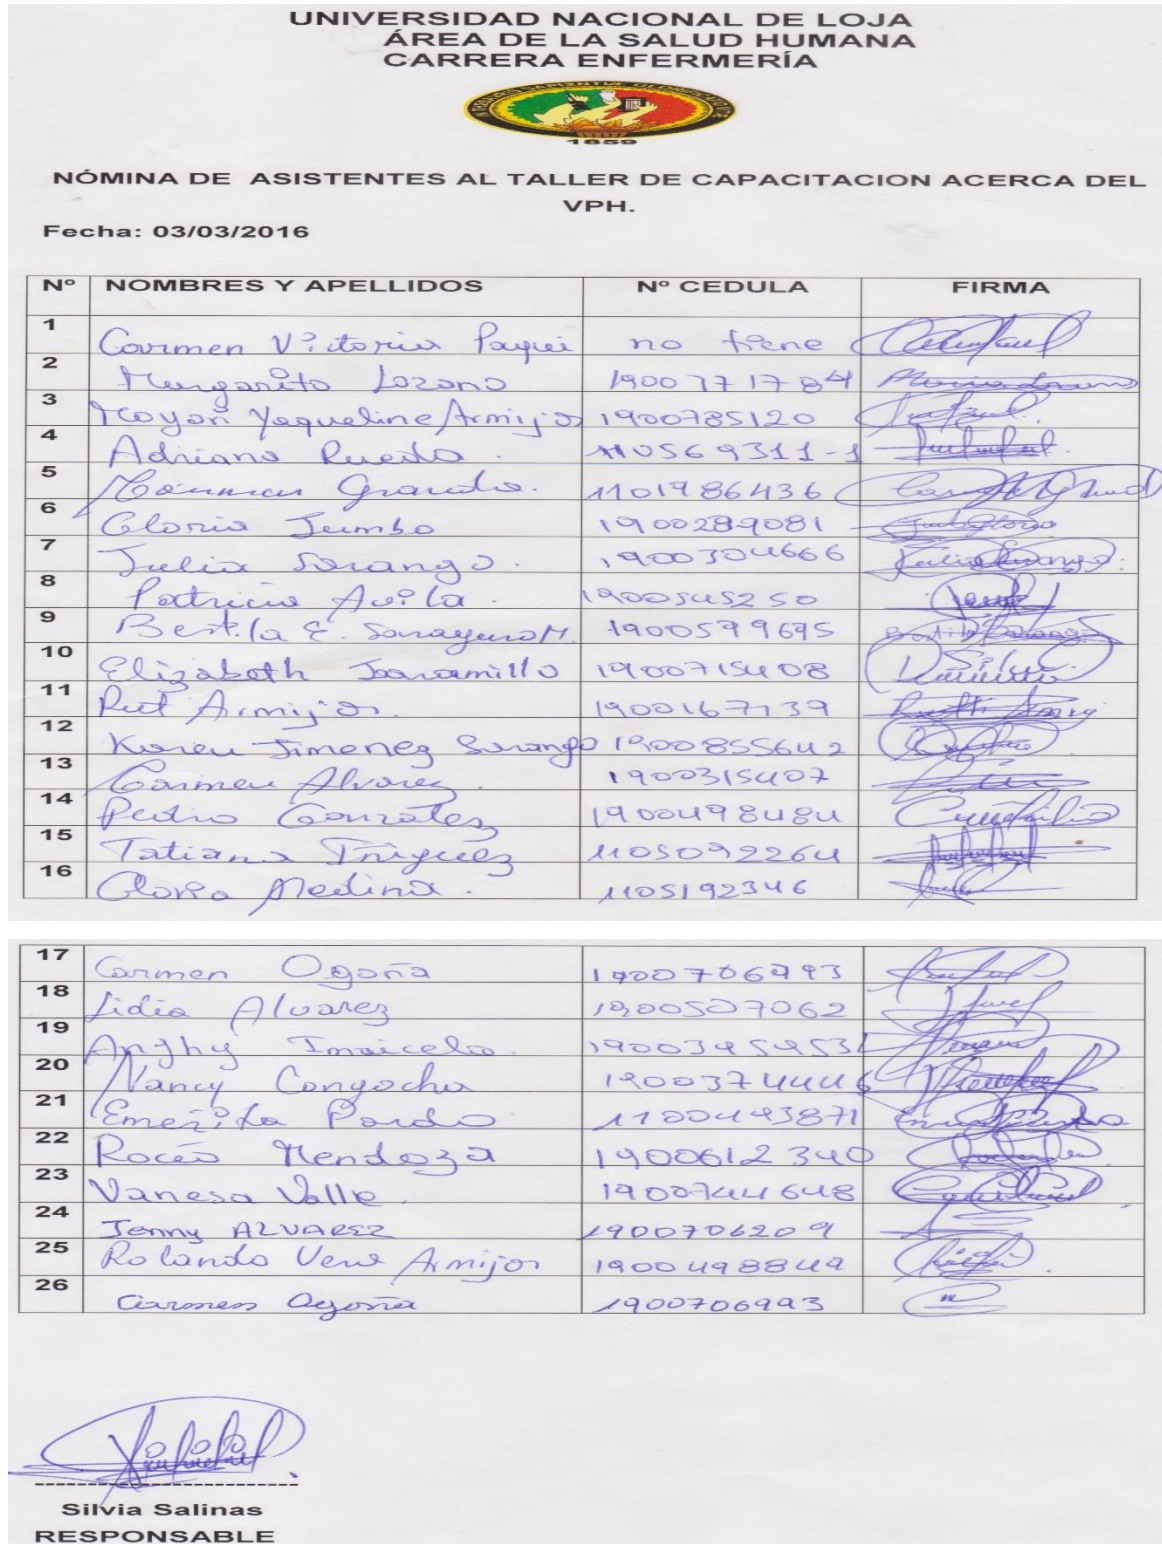 UNIVERSIDAD NACIONAL DE LOJA
ÁREA DE LA SALUD HUMANA
CARRERA ENFERMERÍA
1859
NÓMINA DE ASISTENTES AL TALLER DE CAPACITACION ACERCA DEL
VPH.
Fecha: 03/03/2016
Nº NOMBRES Y APELLIDOS Nº CEDULA FIRMA
1 Carmen Victoria no tiene
2 Margarito Lozano 1900771784
3 Yaqueline Armijos 1900785120
4 Adriano Rueda. 110569311-1
5 1101986436
6 Gloria Jumbo 1900289081
7 Julia Sarango. 1900304666
8 Patricia Avila. 1900545250
9 1900579695
10 Elizabeth Jaramillo 1900715408
11 Rut Armijos. 1900167139
12 Karen Jimenez Sarango 1900855642
13 Carmen Alvarez. 1900315407
14 Pedro Gonzalez 1900498484
15 Tatiana Iñiguez 1105092264
16 Gloria Medina. 1105192346
17 Carmen Ogoña 1900706993
18 Lidia Alvarez 1900507062
19 Anghy
20 Nancy Congocha 1900374446
21 Emerita Pardo 1100443871
22 Rocío Mendoza 1900612340
23 Vanesa Valle. 1900744648
24 Jenny ALVAREZ 1900706209
25 Rolando Vera Armijos 1900498849
26 Carmen Ogoña 1900706993
Silvia Salinas
RESPONSABLE